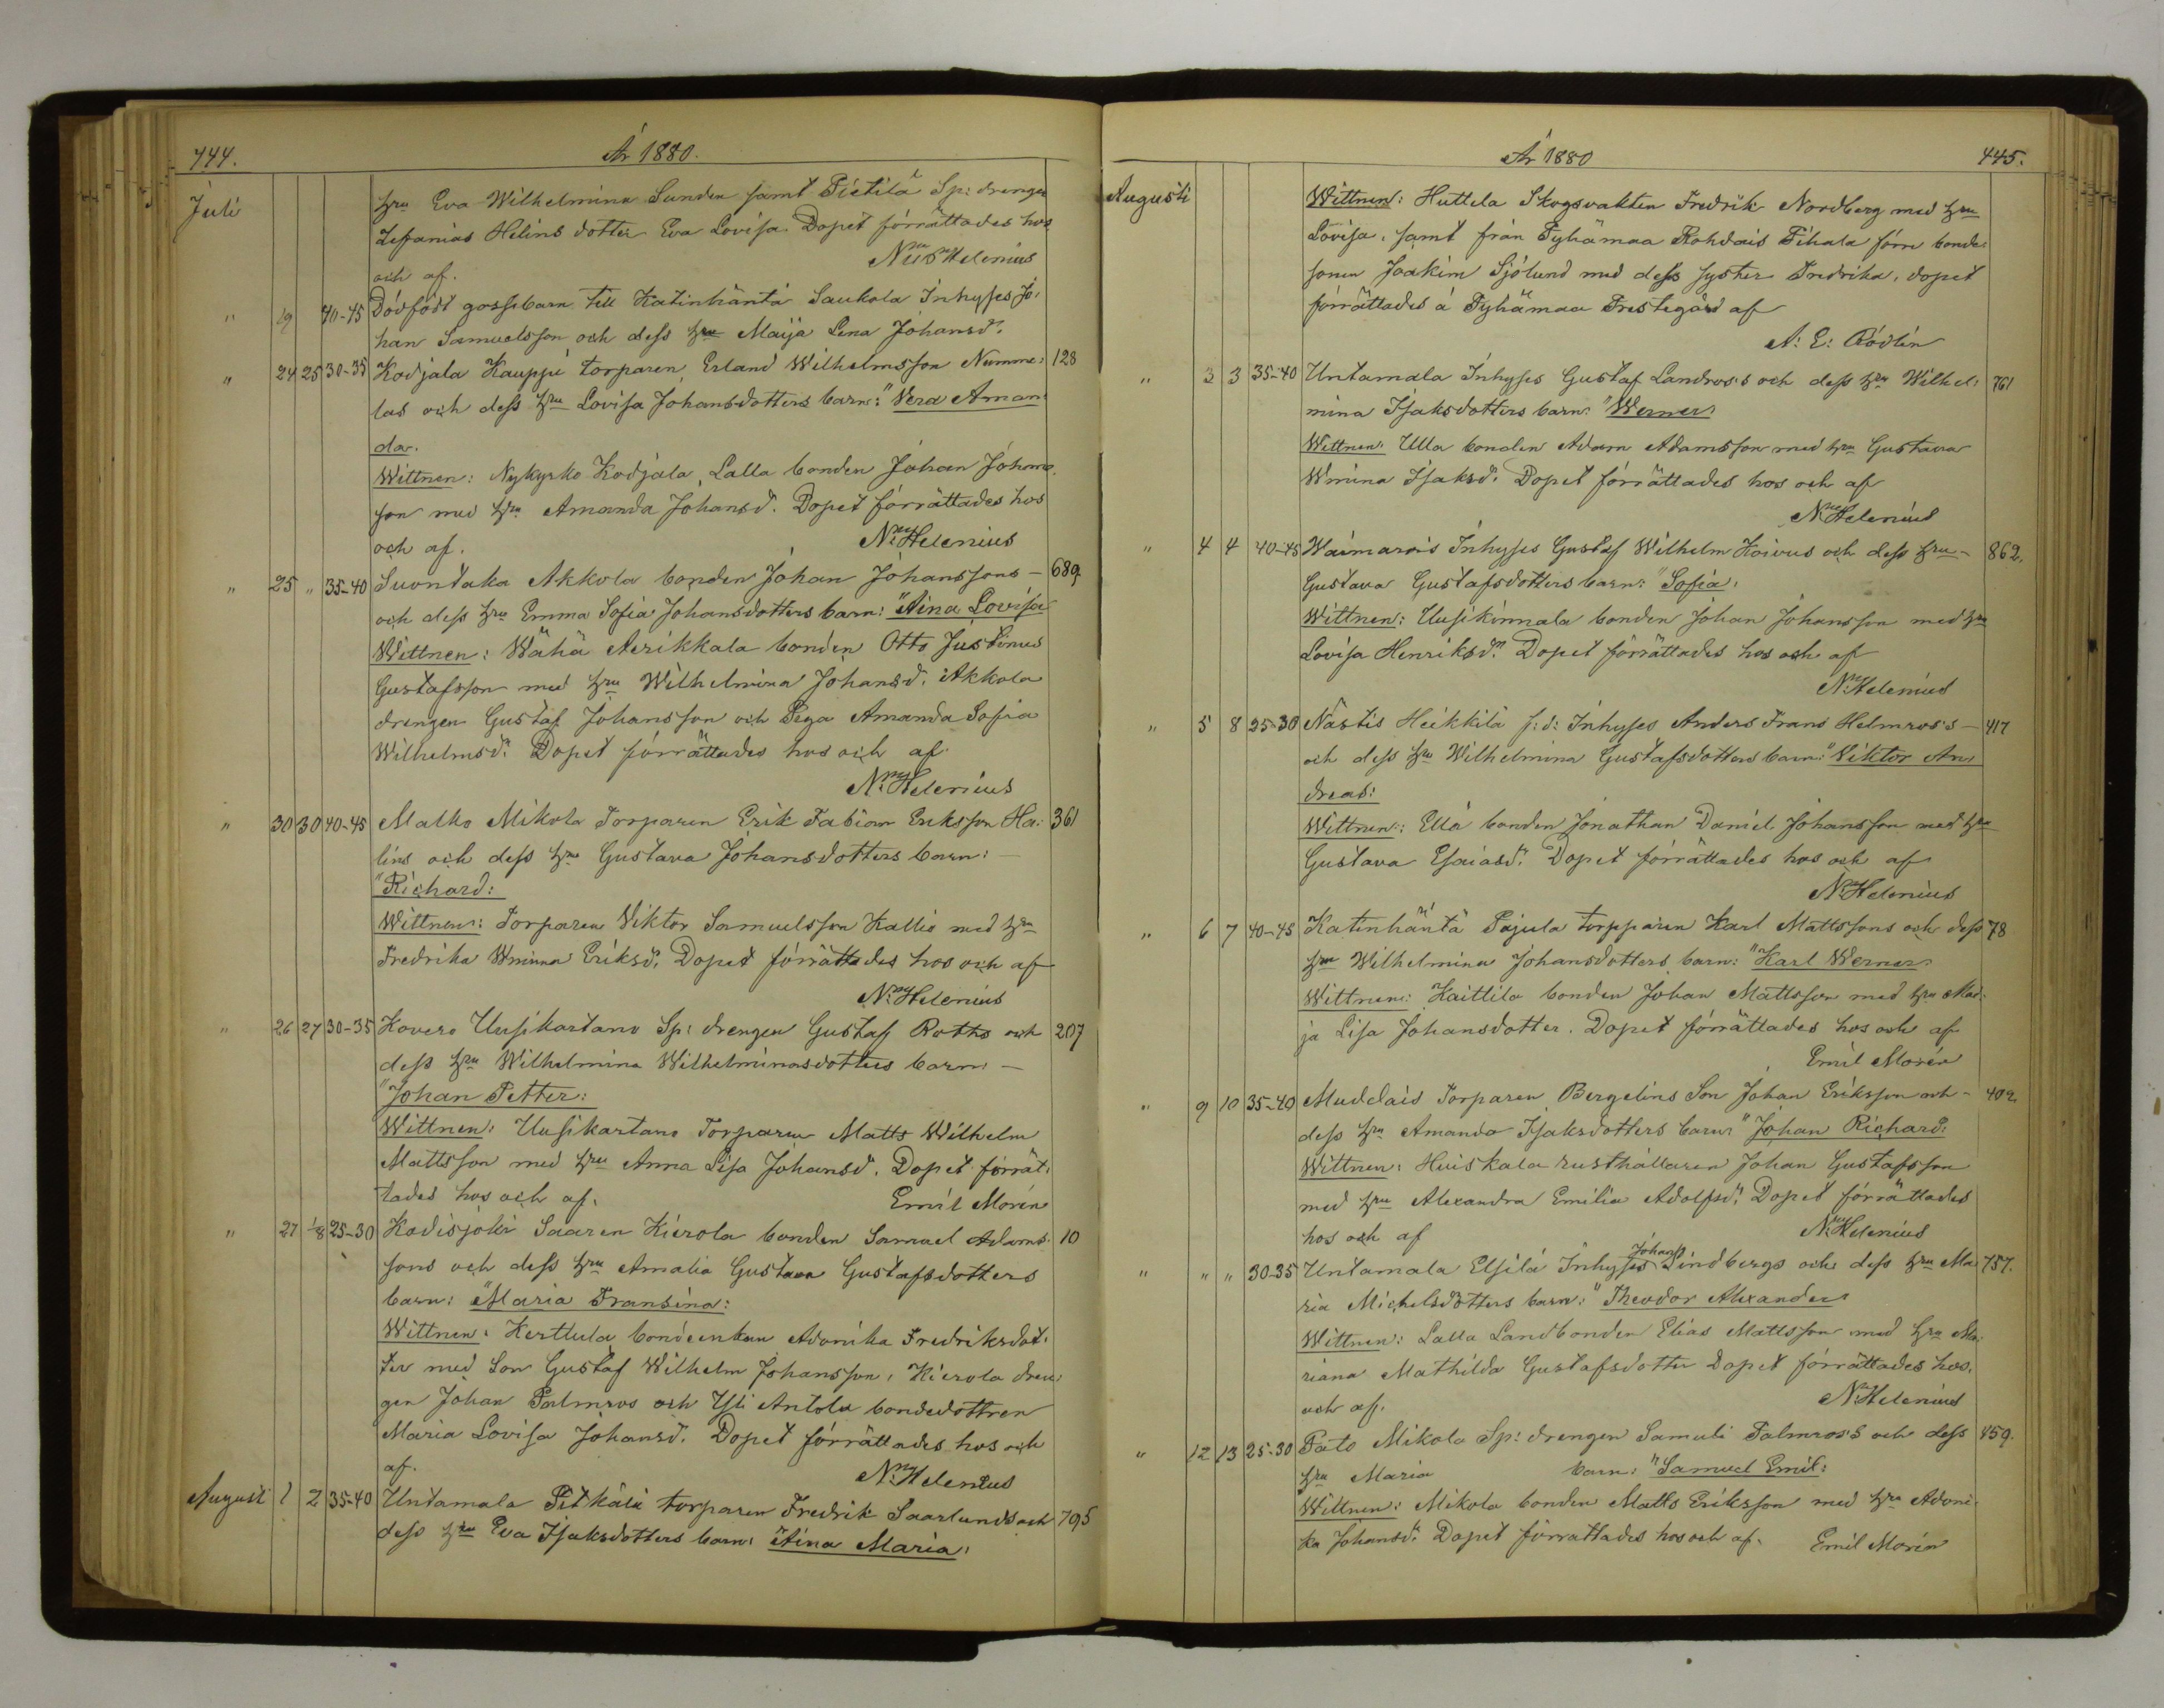 444.
År 1880.
Juli
hru Eva Wilhelmina Sunden samt Pietilä Sp: drengen
Zefanias Helins dotter Eva Lovisa. Dopet förrättades hos
och af. Nils Helenius
" 19 40-45 Dödfödt gossebarn till Katinhäntä Saukola Inhyses Jo,
han Samuelsson och dess hru Maija Lena Johansd.
" 24 25 30-35 Kodjala Kauppi torparen Erland Wilhelmsson Numme: 128
las och dess hru Lovisa Johansdotters barn: "Vera Aman
da.
Wittnen: Nykyrko Kodjala, Lalla bonden Johan Johans
son med hru Amanda Johansd. Dopet förrättades hos
och af. Ns Helenius
" 25 " 35-40 Suontaka Akkola bonden Johan Johanssons - 689
och dess hru Emma Sofia Johansdotters barn: "Aina Lovisa
Wittnen: Wähä Aerikkala bonden Otto Justinus
Gustafsson med hru Wilhelmina Johansd. Akkola
drengen Gustaf Johansson och Piga Amanda Sofia
Wilhelmsd: Dopet förrättades hos och af
Ns Helenius
" 30 30 40-45 Malko Mikola Torparen Erik Fabian Eriksson Ha: 361
lins och dess hru Gustava Johansdotters barn: -
"Richard:
Wittnen: Torparen Viktor Samuelsson Kallio med hru
Fredrika Wmina Eriksd. Dopet förrättades hos och af
Ns Helenius
" 26 27 30-35 Kovero Uusikartano Sp: drengen Gustaf Roths och 207
dess hru Wilhelmina Wilhelminasdotters barn: -
"Johan Petter:
Wittnen: Uusikartano Torparen Matts Wilhelm
Mattsson med hru Anna Lisa Johansd. Dopet förrät,
tades hos och af. Emil Morén
" 27 1/8 25-30 Kodisjoki Saaren Kierola bonden Samuel Adams 10
sons och dess hru Amalia Gustava Gustafsdotters
barn: "Maria Fransina:
Wittnen: Kerttula bondeenkan Adonika Fredriksdot,
ter med Son Gustaf Wilhelm Johansson, Kierola dren:
gen Johan Palmros och Yli Antola bondedottren
Maria Lovisa Johansd. Dopet förrättades hos och
af. Ns Helenius
Augusti 1 2 35-40 Untamala Pitkäli torparen Fredrik Saarlunds och 795
dess hru Eva Isaksdotters barn: "Aina Maria:
År 1880
445.
Augusti
Wittnen: Huttela Skogsvakten Fredrik Nordberg med hru
Lovisa, samt från Pyhämaa Rohdais Pihala förre bonde
sonen Joakim Sjölund med dess syster Fredrika, dopet
förrättades å Pyhämaa Prestegård af
A: E: Rödlin
" 3 3 35-40 Untamala Inhyses Gustaf Landros's och dess hru Wilhel: 761
mina Isaksdotters barn: "Werner:
Wittnen: Ulla bonden Adam Adamsson med hru Gustava
Wmina Isaksd: Dopet förrättades hos och af
Ns Helenius
" 4 4 40-45 Waimarois Inhyses Gustaf Wilhelm Koivus och dess hru - 862.
Gustava Gustafsdotters barn: "Sofia:
Wittnen: Uusikinnala bonden Johan Johansson med hru
Lovisa Henriksd: Dopet förrättades hos och af
Ns Helenius
" 5 8 25-30 Nästis Heikkilä f: d: Inhyses Anders Frans Helmros's - 417
och dess hru Wilhelmina Gustafsdotters barn: "Viktor An,
dreas:
Wittnen: Ellä bonden Jonathan Daniel Johansson med hru
Gustava Esaiasd: Dopet förrättades hos och af
Ns Helenius
" 6 7 40-45 Katinhäntä Pajula torpparen Karl Mattssons och dess 78
hru Wilhelmina Johansdotters barn: "Karl Werner:
Wittnen: Kaittila bonden Johan Mattsson med hru Mai:
ja Lisa Johansdotter. Dopet förrättades hos och af
Emil Morén
" 9 10 35-40 Muddais Torparen Bergelins Son Johan Eriksson och - 402.
dess hru Amanda Isaksdotters barn: "Johan Richard:
Wittnen: Huiskala rusthållaren Johan Gustafsson
med hru Alexandra Emilia Adolfsd: Dopet förrättades
hos och af Ns Helenius
" " " 30-35 Untamala Elsilä Inhyses Johans Lindbergs och dess hru Ma 757.
ria Michelsdotters barn: "Theodor Alexander
Wittnen: Lalla Landbonden Elias Mattsson med hru Ma:
riana Mathilda Gustafsdotter Dopet förrättades hos,
och af. Ns Helenius
" 12 13 25-30 Päto Mikola Sp: drengen Samuli Palmros's och dess 459.
hru Maria barn: "Samuel Emil:
Wittnen: Mikola bonden Matts Eriksson med hru Adoni,
ka Johansd: Dopet förrättades hos och af. Emil Morén